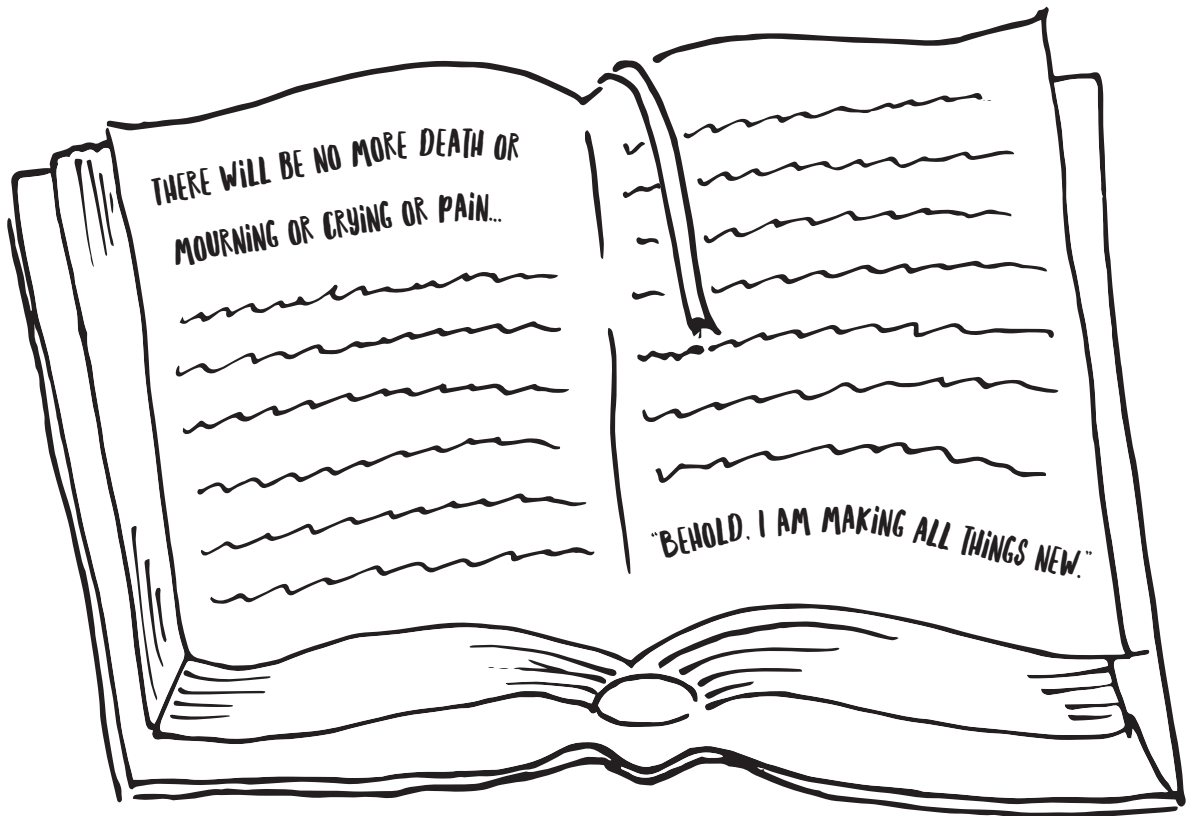 THERE WiLL BE NO MORE DEATH OR
MOURNiNG OR CRYiNG OR PAiN...
“BEHOLD, I AM MAKiNG ALL THiNGS NEW.”